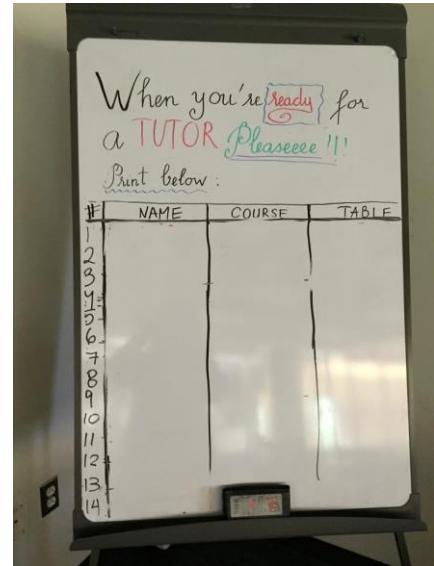 When you're ready for
a TUTOR Pleaseeee !!!
Print below :
# NAME COURSE TABLE
1
2
3
4
5
6
7
8
9
10
11
12
13
14